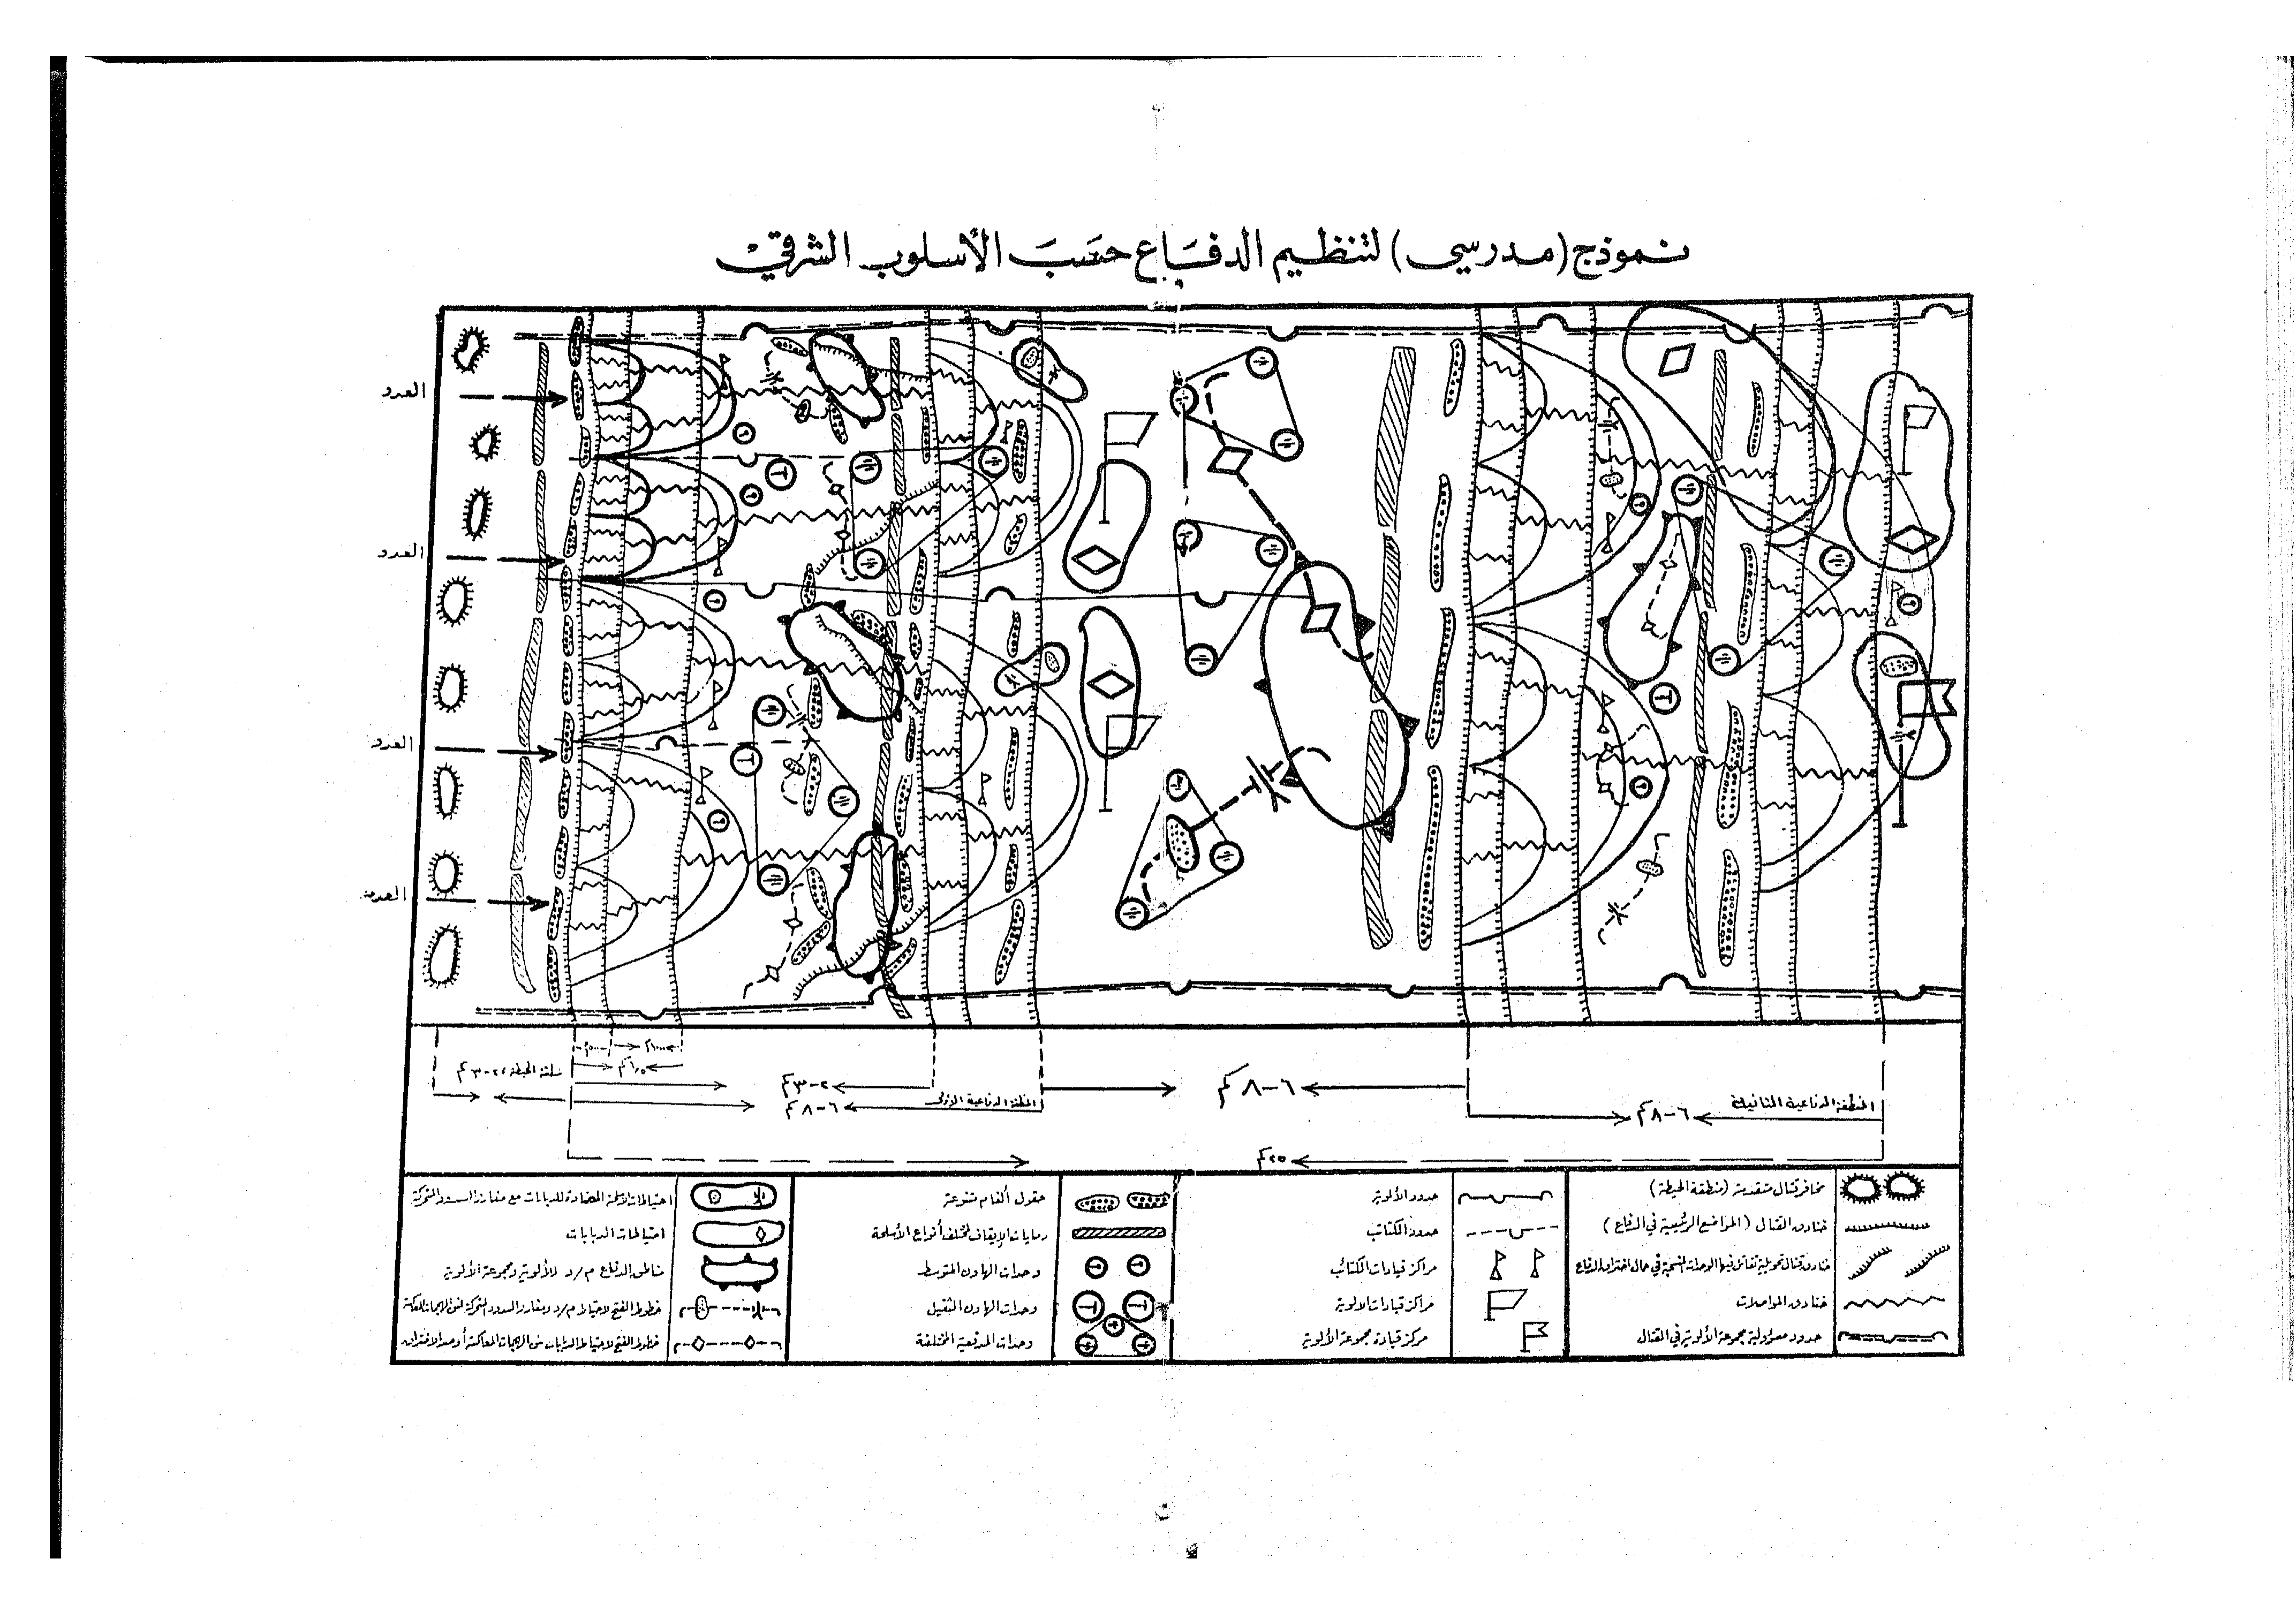 نموذج (مدرسي) لتنظيم الدفاع حسب الأسلوب الشرقي
العدو
العدو
العدو
العدو
٥٠٠م
١٠٠٠م
١٫٥كم
منطقة الحيطة ٢-٣كم
٢-٣كم
المنطقة الدفاعية الأولى
٦-٨كم
٦-٨كم
المنطقة الدفاعية الثانية
٦-٨كم
٢٥كم
مخافر قتال متقدمة (منطقة الحيطة)
خنادق القتال (المواضع الرئيسية في الدفاع)
خنادق قتال تحويلية تقاتل فيها الوحدات في حال اختراق الدفاع
خنادق المواصلات
حدود مسؤولية مجموعة الألوية في القتال
حدود الألوية
حدود الكتائب
مراكز قيادات الكتائب
مراكز قيادات الألوية
مركز قيادة مجموعة الألوية
حقول ألغام متنوعة
رمايات الإيقاف لمختلف أنواع الأسلحة
وحدات الهاون المتوسط
وحدات الهاون الثقيل
وحدات المدفعية المختلفة
احتياطات الأسلحة المضادة للدبابات مع مفارز السدود المتحركة
احتياطات الدبابات
مناطق الدفاع م/د للألوية ومجموعة الألوية
خطوط الفتح لاحتياط م/د ومفارز السدود المتحركة
خطوط الفتح لاحتياط الدبابات الهجمات المعاكسة أو صد الاختراق